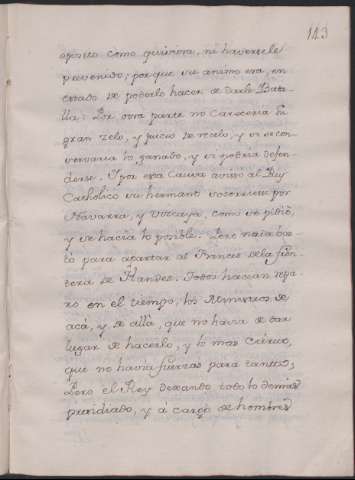 143
oposito como quisiera, ni haversele
prevenido; porque su animo era, en
estado de poderlo hacer de darle Bata-
lla: Por otra parte no Careceria su
gran zelo, y juicio de recelo, y si se con-
servaria lo ganado, y si podria defen-
derse. Y por esta Causa aviso al Rey
Catholico su hermano socorriese por
Navarra, y Vizcaya, como se pidio,
y se hacia lo posible. Pero nada bas-
tò para apartar al Frances de la fron-
tera de Flandes. Todos hacian repa-
ro en el tiempo, los Ministros de
acà, y de allà, que no havia de dar
lugar de hacerlo, y lo mas Cierto,
que no havia fuerzas para tanto;
Pero el Rey dexando todo lo demas
presidiado, y à cargo de hombres